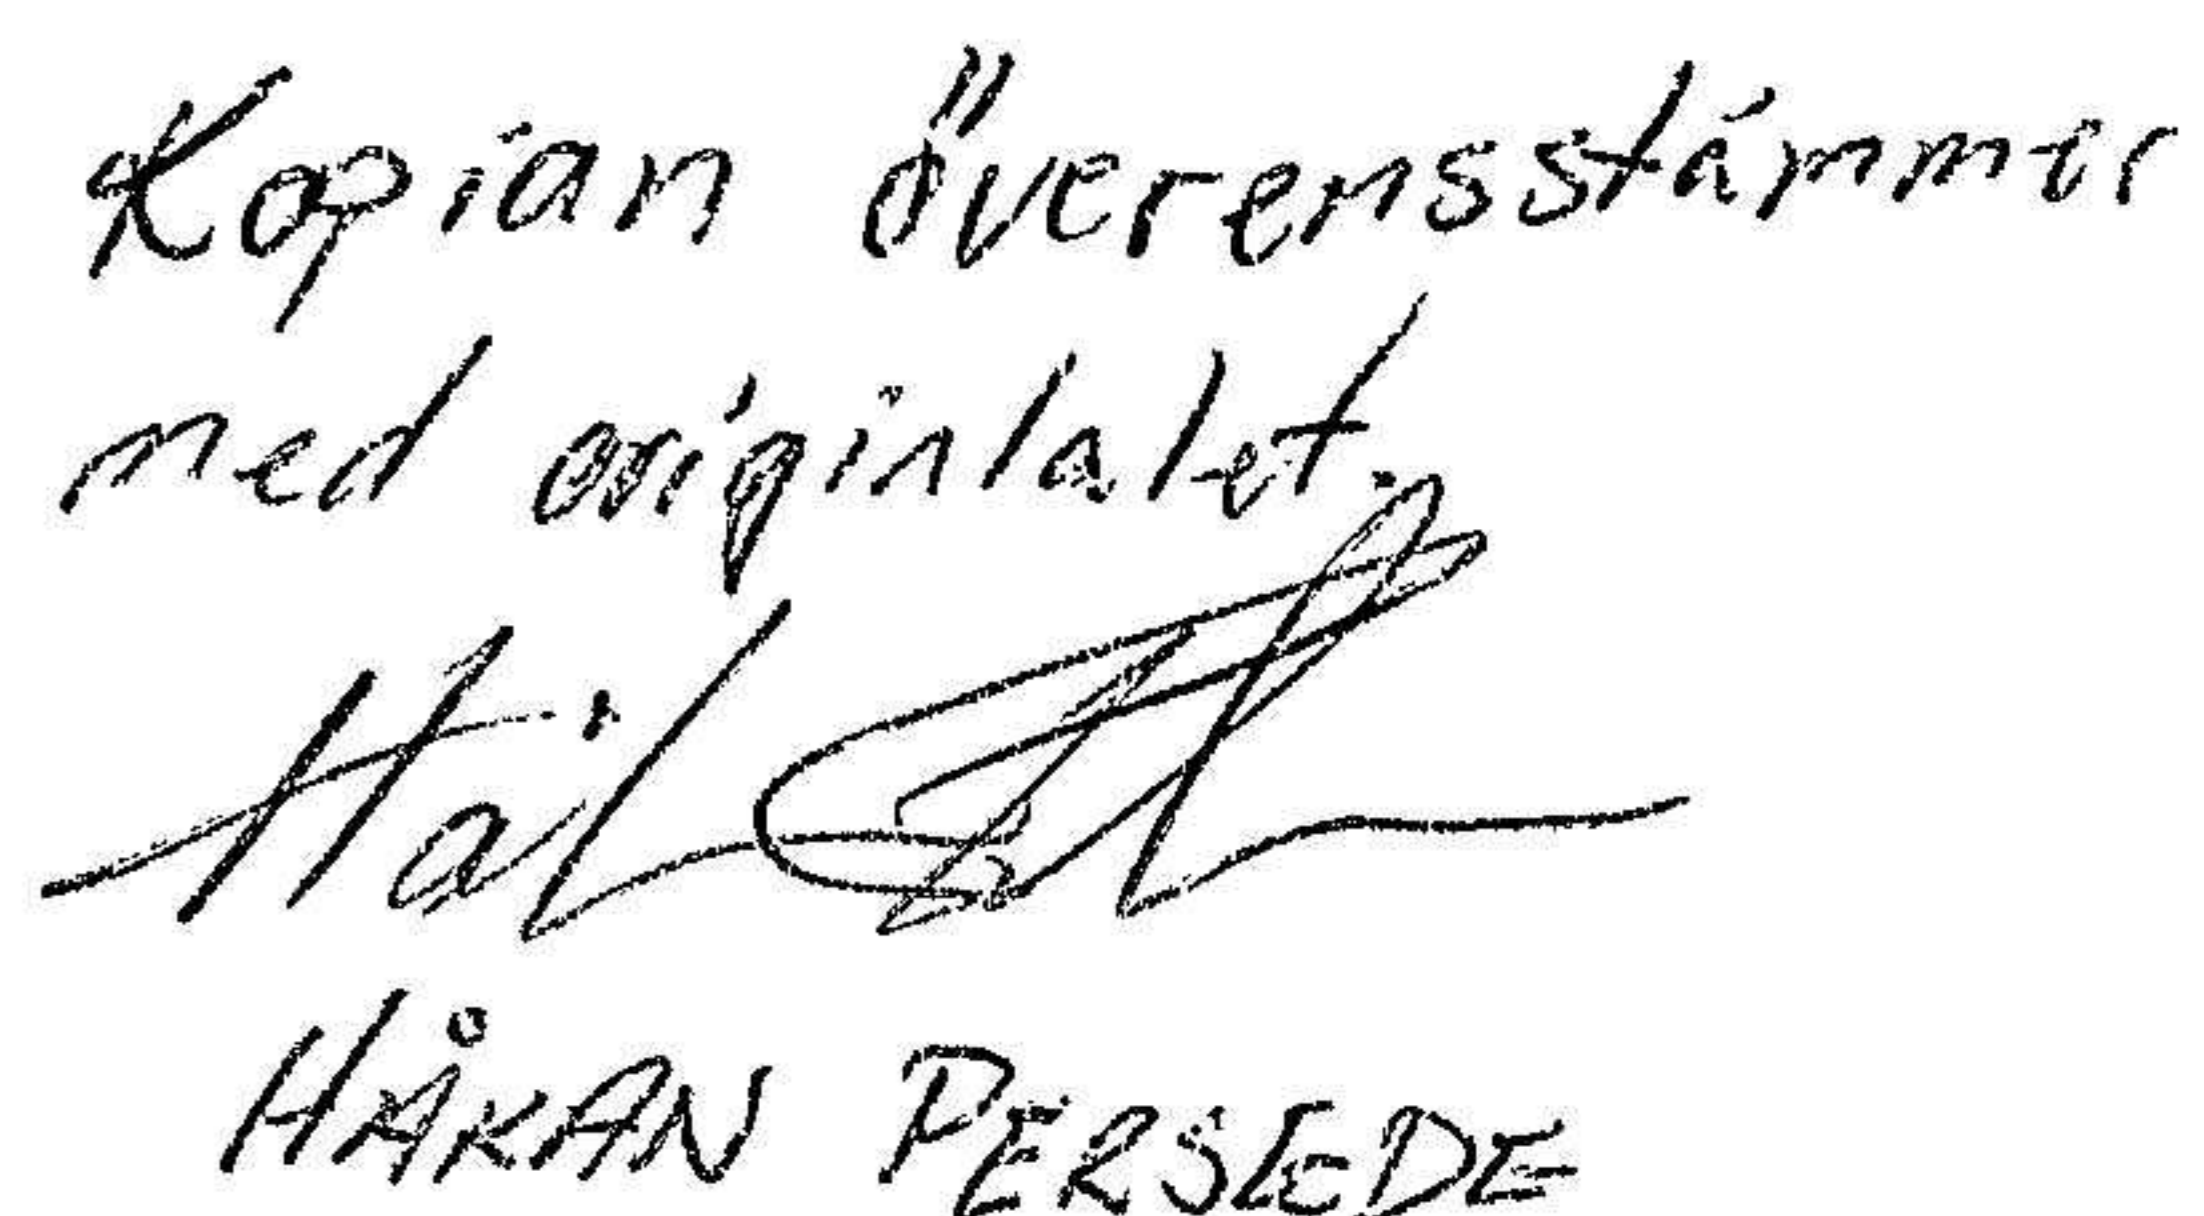 Kopian överensstämmer
med originlalet.
HÅKAN PERSEDE